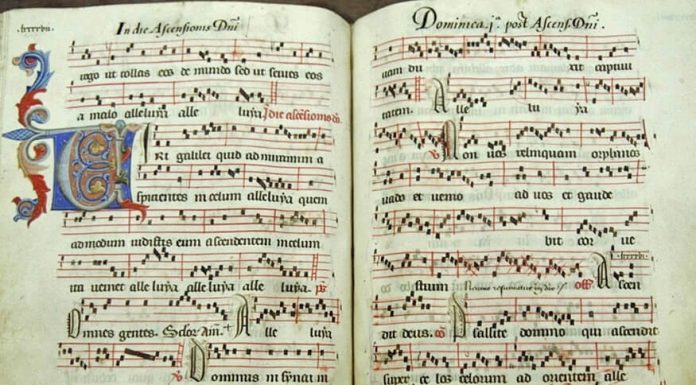 In die Ascensionis Dñi
rogo ut tollas eos de mundo sed ut serues eos
a malo alleluya alle luya In die ascēsionis
Uiri galilei quid admiramini a
spicientes in celum alleluya quem
admodum uidistis eum ascendentem in celum
ita ueniet alle luya alle luya alle luya. ps
Omnes gentes. Alle luya
Dominus in synai in
Dominica post Ascens. Dñi
xit captiui
tatem. Alle lu ya
Non uos relinquam orphanos
uado et uenio ad uos et gaude
bit cor ue
strum Ascen
dit deus. Psallite domino qui ascendit
super ce los celorum ad orientem alle